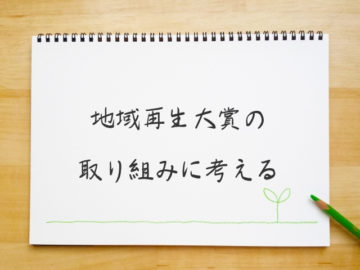 地域再生大賞の
取り組みに考える